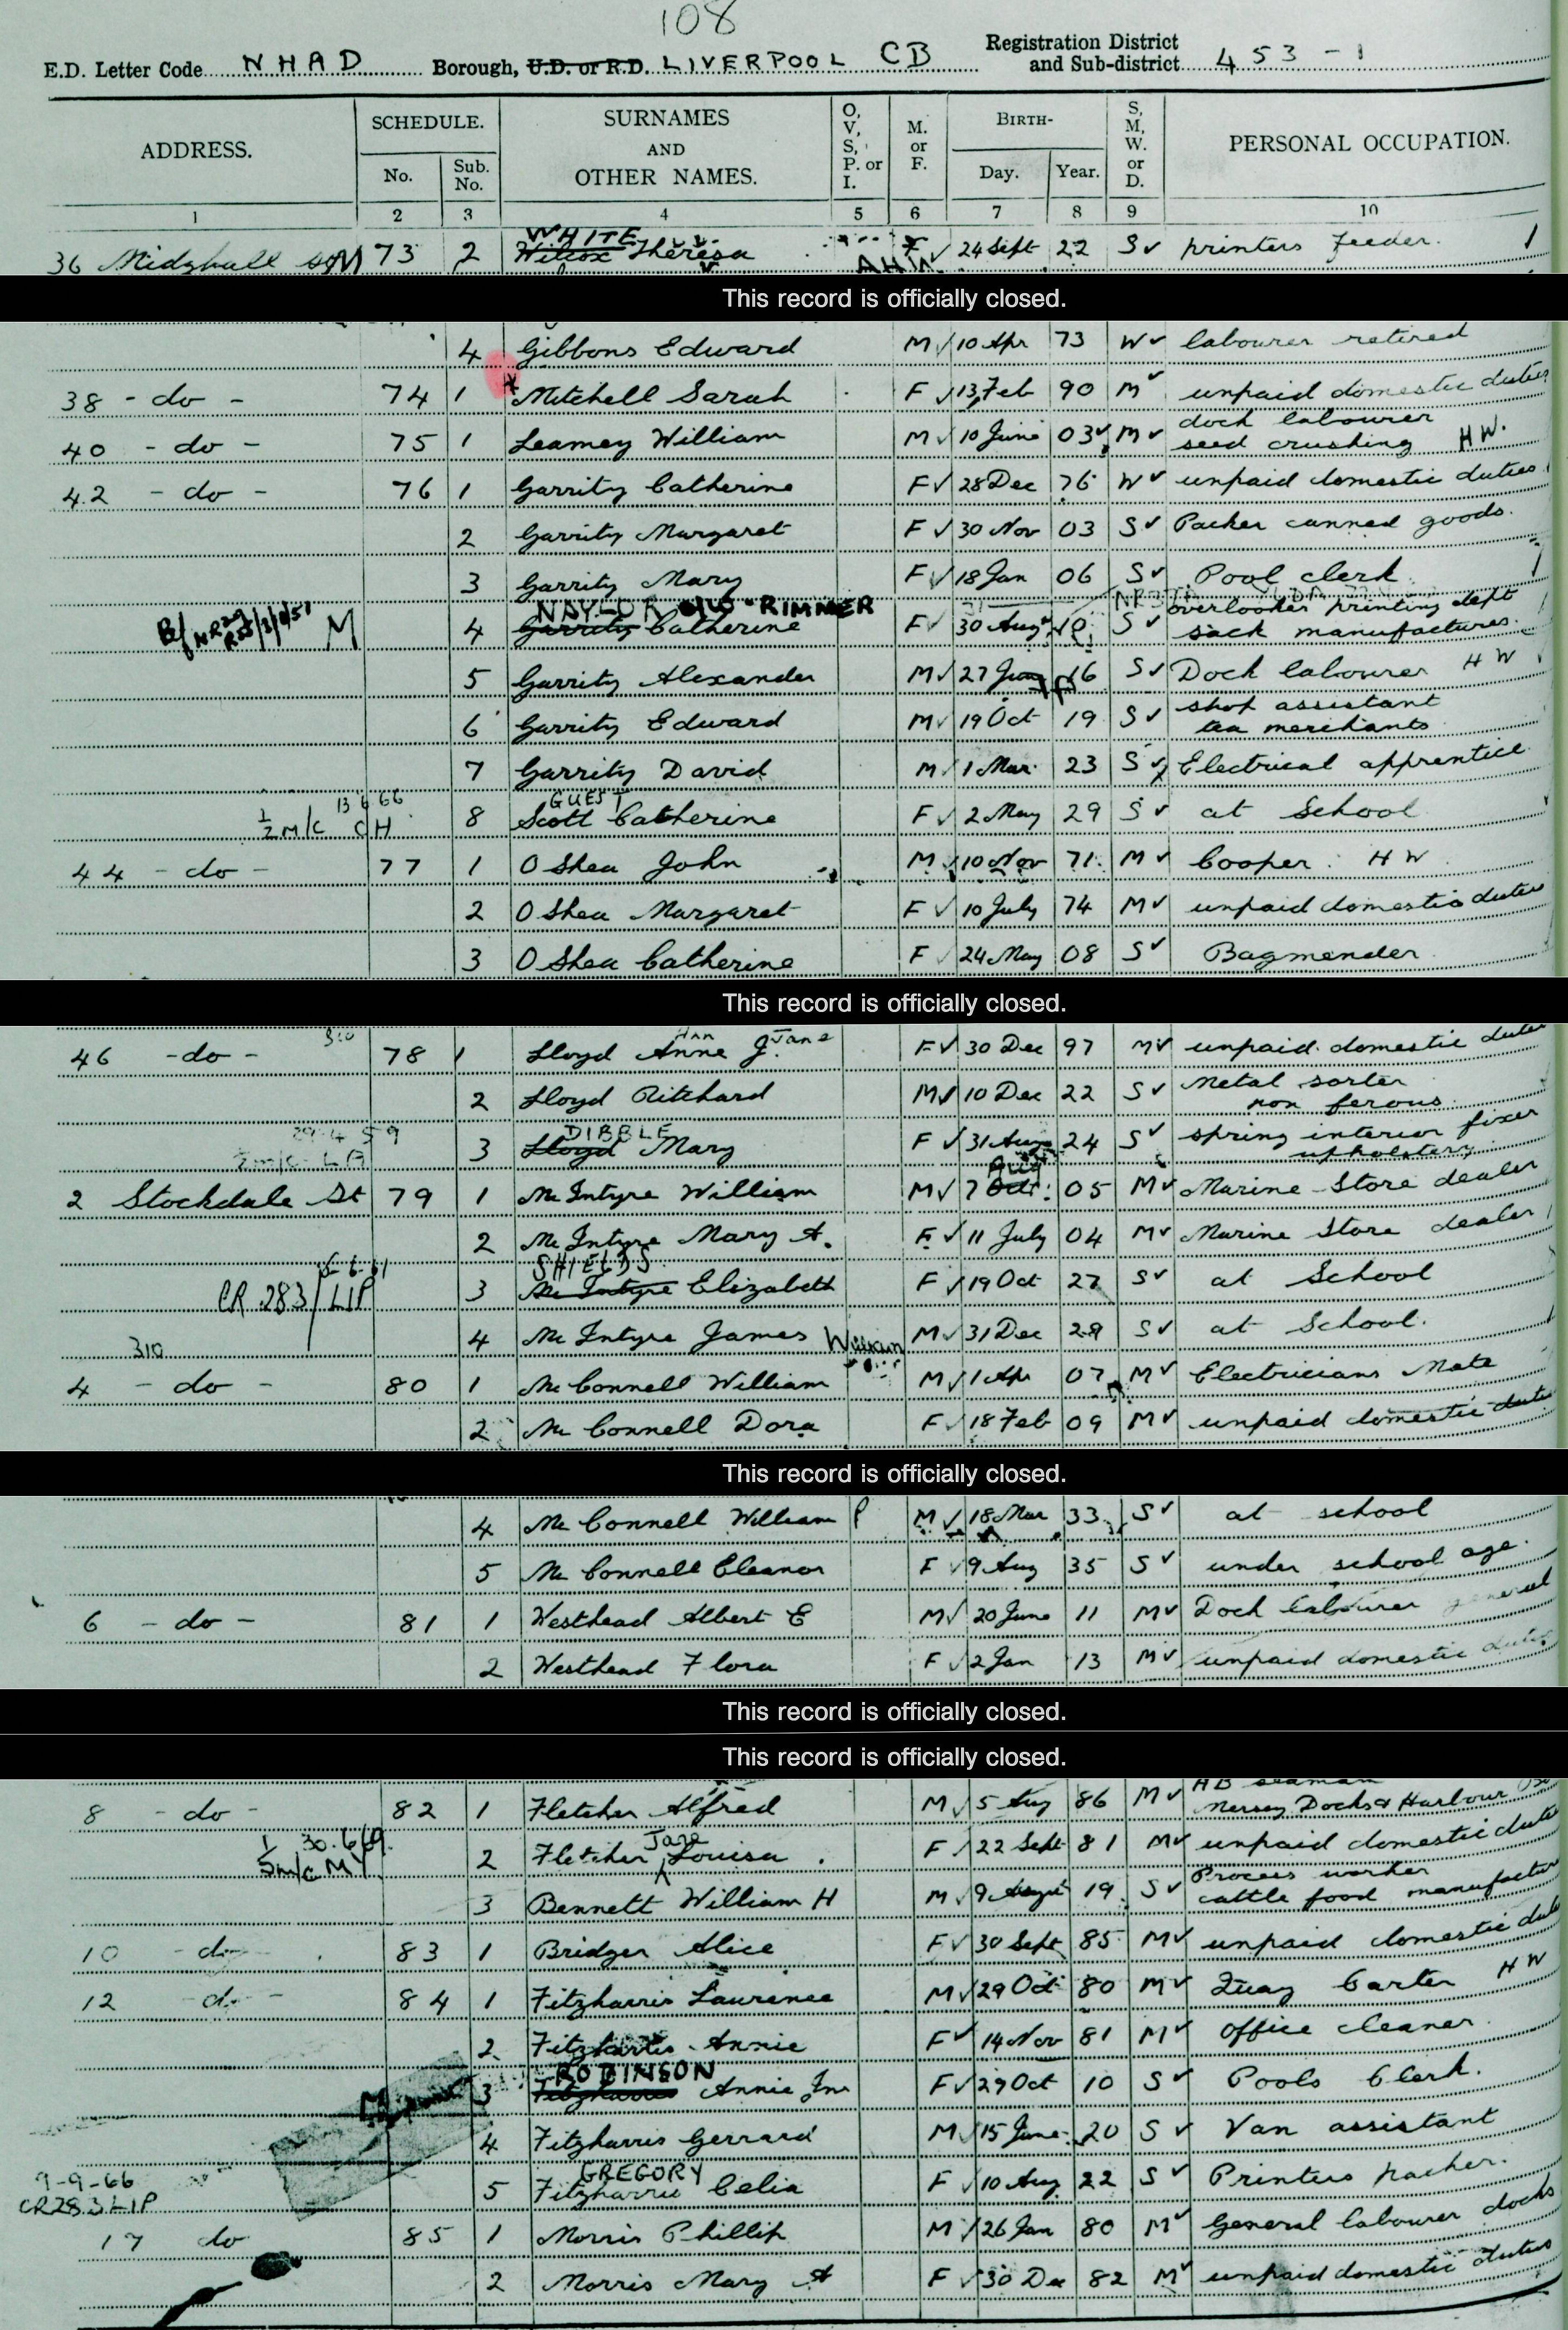 108
E.D. Letter Code NHAD Borough, U.D. or R.D. LIVERPOOL CB Registration District and Sub-district 453-1
ADDRESS. SCHEDULE. No. Sub. No. SURNAMES AND OTHER NAMES. O, V, S, P. or I. M. or F. BIRTH- Day. Year. S, M, W. or D. PERSONAL OCCUPATION.
1 2 3 4 5 6 7 8 9 10
WHITE
36 Midghall 73 2 Wilcox Theresa F 24 Sept 22 S printers feeder. 1
AHW
This record is officially closed.
4 Gibbons Edward M 10 Apr 73 W labourer retired
38 - do - 74 1 Mitchell Sarah F 13 Feb 90 M unpaid domestic duties
40 - do - 75 1 Leamey William M 10 June 03 M dock labourer seed crushing HW.
42 - do - 76 1 Garrity Catherine F 28 Dec 76 W unpaid domestic duties
2 Garrity Margaret F 30 Nov 03 S Packer canned goods.
3 Garrity Mary F 18 Jan 06 S Pool clerk
NAYLOR O/W RIMMER
M 4 Garrity Catherine F 30 Aug 10 S overlooker printing dept sack manufactures.
5 Garrity Alexander M 27 16 S Dock labourer HW
6 Garrity Edward M 19 Oct 19 S shop assistant tea merchants
7 Garrity David M 1 Mar 23 S Electrical apprentice
13 6 66 GUEST
1/2 M/C CH 8 Scott Catherine F 2 May 29 S at School
44 - do - 77 1 O Shea John M 10 Nov 71 M Cooper HW
2 O Shea Margaret F 10 July 74 M unpaid domestic duties
3 O Shea Catherine F 24 May 08 S Bagmender
This record is officially closed.
310 Ann Jane
46 - do - 78 1 Lloyd Anne J. F 30 Dec 97 M unpaid domestic duties
2 Lloyd Ritchard M 10 Dec 22 S Metal sorter non ferous
29.4 59 DIBBLE
3 Lloyd Mary F 31 Aug 24 S spring interior fixer upholstery
Aug
2 Stockdale St 79 1 Mc Intyre William M 7 Oct 05 M Marine Store dealer
2 Mc Intyre Mary A. F 11 July 04 M Marine Store dealer
6-6-61 SHIELDS
CR 283/LIP 3 Mc Intyre Elizabeth F 19 Oct 27 S at School
4 Mc Intyre James William M 31 Dec 29 S at School.
310
4 - do - 80 1 Mc Connell William M 1 Apr 07 M Electricians Mate
2 Mc Connell Dora F 18 Feb 09 M unpaid domestic duties
This record is officially closed.
4 Mc Connell William P M 18 Mar 33 S at school
5 Mc Connell Eleanor F 9 Aug 35 S under school age.
6 - do - 81 1 Westhead Albert E M 20 June 11 M Dock labourer general
2 Westhead Flora F 2 Jan 13 M unpaid domestic duties
This record is officially closed.
This record is officially closed.
8 - do - 82 1 Fletcher Alfred M 5 Aug 86 M AB seaman Mersey Docks & Harbour
30.6.69 Jane
1/2 m/c MY 2 Fletcher Louisa F 22 Sept 81 M unpaid domestic duties
3 Bennett William H M 9 19 S Process worker cattle food manufacture
10 - do - 83 1 Bridger Alice F 30 Sept 85 M unpaid domestic duties
12 - do - 84 1 Fitzharris Laurence M 29 Oct 80 M Quay Carter HW
2 Fitzharris Annie F 14 Nov 81 M office cleaner
ROBINSON
3 Fitzharris Annie Jnr F 29 Oct 10 S Pools Clerk.
4 Fitzharris Gerrard M 15 June 20 S Van assistant
9-9-66 GREGORY
CR283LIP 5 Fitzharris Celia F 10 Aug 22 S Printers packer.
17 do 85 1 Morris Phillip M 26 Jan 80 M General labourer docks
2 Morris Mary A F 30 Dec 82 M unpaid domestic duties